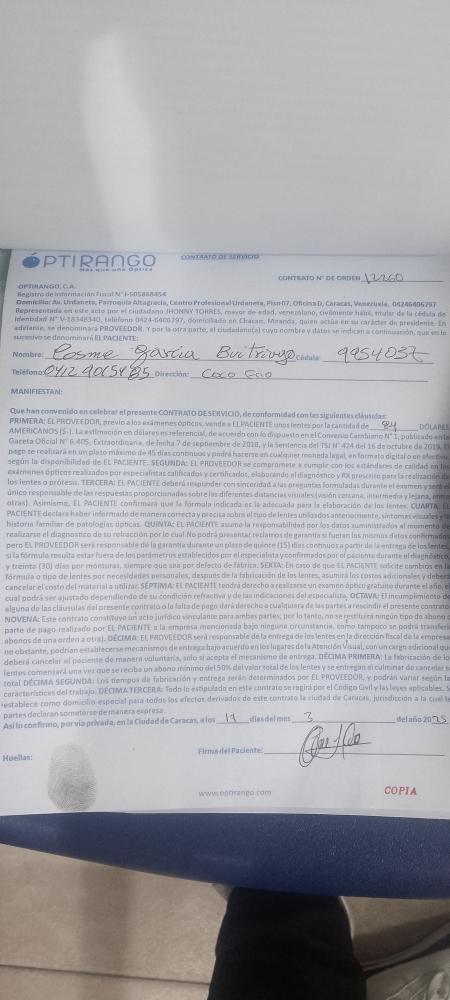 OPTIRANGO
Más que una Óptica
CONTRATO DE SERVICIO
CONTRATO N° DE ORDEN 12260
OPTIRANGO, C.A.
Registro de Información Fiscal N° J-505888454
Domicilio: Av. Urdaneta, Parroquia Altagracia, Centro Profesional Urdaneta, Piso 07, Oficina D, Caracas, Venezuela. 04246406797
Representada en este acto por el ciudadano JHONNY TORRES, mayor de edad, venezolano, civilmente hábil, titular de la cédula de
identidad N° V-18348340, teléfono 0424-6406797, domiciliado en Chacao, Miranda, quien actúa en su carácter de presidente. En
adelante, se denominará PROVEEDOR. Y por la otra parte, el ciudadano(a) cuyo nombre y datos se indican a continuación, que en lo
sucesivo se denominará EL PACIENTE:
Nombre: Cosme Garcia Buitriago Cédula: 9954037
Teléfono: 0412 9065485 Dirección: Coco
MANIFIESTAN:
Que han convenido en celebrar el presente CONTRATO DE SERVICIO, de conformidad con las siguientes cláusulas:
PRIMERA: EL PROVEEDOR, previo a los exámenes ópticos, vende a EL PACIENTE unos lentes por la cantidad de 84 DÓLARES
AMERICANOS ($-). La estimación en dólares es referencial, de acuerdo con lo dispuesto en el Convenio Cambiario N° 1, publicado en la
Gaceta Oficial N° 6.405, Extraordinaria, de fecha 7 de septiembre de 2018, y la Sentencia del TSJ N° 424 del 16 de octubre de 2019. El
pago se realizará en un plazo máximo de 45 días continuos y podrá hacerse en cualquier moneda legal, en formato digital o en efectivo,
según la disponibilidad de EL PACIENTE. SEGUNDA: EL PROVEEDOR se compromete a cumplir con los estándares de calidad en los
exámenes ópticos realizados por especialistas calificados y certificados, elaborando el diagnóstico y RX prescrito para la realización de
los lentes o prótesis. TERCERA: EL PACIENTE deberá responder con sinceridad a las preguntas formuladas durante el examen y será el
único responsable de las respuestas proporcionadas sobre las diferentes distancias visuales (visión cercana, intermedia y lejana, entre
otras). Asimismo, EL PACIENTE confirmará que la fórmula indicada es la adecuada para la elaboración de los lentes. CUARTA: EL
PACIENTE declara haber informado de manera correcta y precisa sobre el tipo de lentes utilizados anteriormente, síntomas visuales y la
historia familiar de patologías ópticas. QUINTA: EL PACIENTE asume la responsabilidad por los datos suministrados al momento de
realizarse el diagnostico de su refracción por lo cual No podrá presentar reclamos de garantía si fueran los mismos datos confirmados
pero EL PROVEEDOR será responsable de la garantía durante un plazo de quince (15) días continuos a partir de la entrega de los lentes,
si la fórmula resulta estar fuera de los parámetros establecidos por el especialista y confirmados por el paciente durante el diagnóstico,
y treinta (30) días por monturas, siempre que sea por defecto de fábrica. SEXTA: En caso de que EL PACIENTE solicite cambios en la
fórmula o tipo de lentes por necesidades personales, después de la fabricación de los lentes, asumirá los costos adicionales y deberá
cancelar el costo del material a utilizar. SÉPTIMA: EL PACIENTE tendrá derecho a realizarse un examen óptico gratuito durante el año, el
cual podrá ser ajustado dependiendo de su condición refractiva y de las indicaciones del especialista. OCTAVA: El incumplimiento de
alguna de las cláusulas del presente contrato o la falta de pago dará derecho a cualquiera de las partes a rescindir el presente contrato.
NOVENA: Este contrato constituye un acto jurídico vinculante para ambas partes; por lo tanto, no se restituirá ningún tipo de abono o
parte de pago realizado por EL PACIENTE a la empresa mencionada bajo ninguna circunstancia, como tampoco se podrá transferir
abonos de una orden a otra). DÉCIMA: EL PROVEEDOR será responsable de la entrega de los lentes en la dirección fiscal de la empresa
no obstante, podrían establecerse mecanismos de entrega bajo acuerdo en los lugares de la Atención Visual, con un cargo adicional que
deberá cancelar el paciente de manera voluntaria, solo si acepta el mecanismo de entrega. DÉCIMA PRIMERA: La fabricación de los
lentes comenzará una vez que se reciba un abono mínimo del 50% del valor total de los lentes y se entregan al culminar de cancelar el
total DÉCIMA SEGUNDA: Los tiempos de fabricación y entrega serán determinados por EL PROVEEDOR, y podrán variar según las
características del trabajo. DÉCIMA TERCERA: Todo lo estipulado en este contrato se regirá por el Código Civil y las leyes aplicables. Se
establece como domicilio especial para todos los efectos derivados de este contrato la ciudad de Caracas, jurisdicción a la cual las
partes declaran someterse de manera expresa.
Así lo confirmo, por vía privada, en la Ciudad de Caracas, a los 19 días del mes 3 del año 2025
Huellas:
Firma del Paciente:
www.optirango.com
COPIA